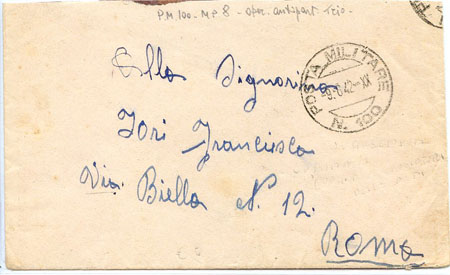 P.M 100 - MP 8 - oper. antipart. Trio -
POSTA MILITARE
N. 100
42-XX
Alla Signorina
Iori Francesca
Via Biella N. 12.
Roma